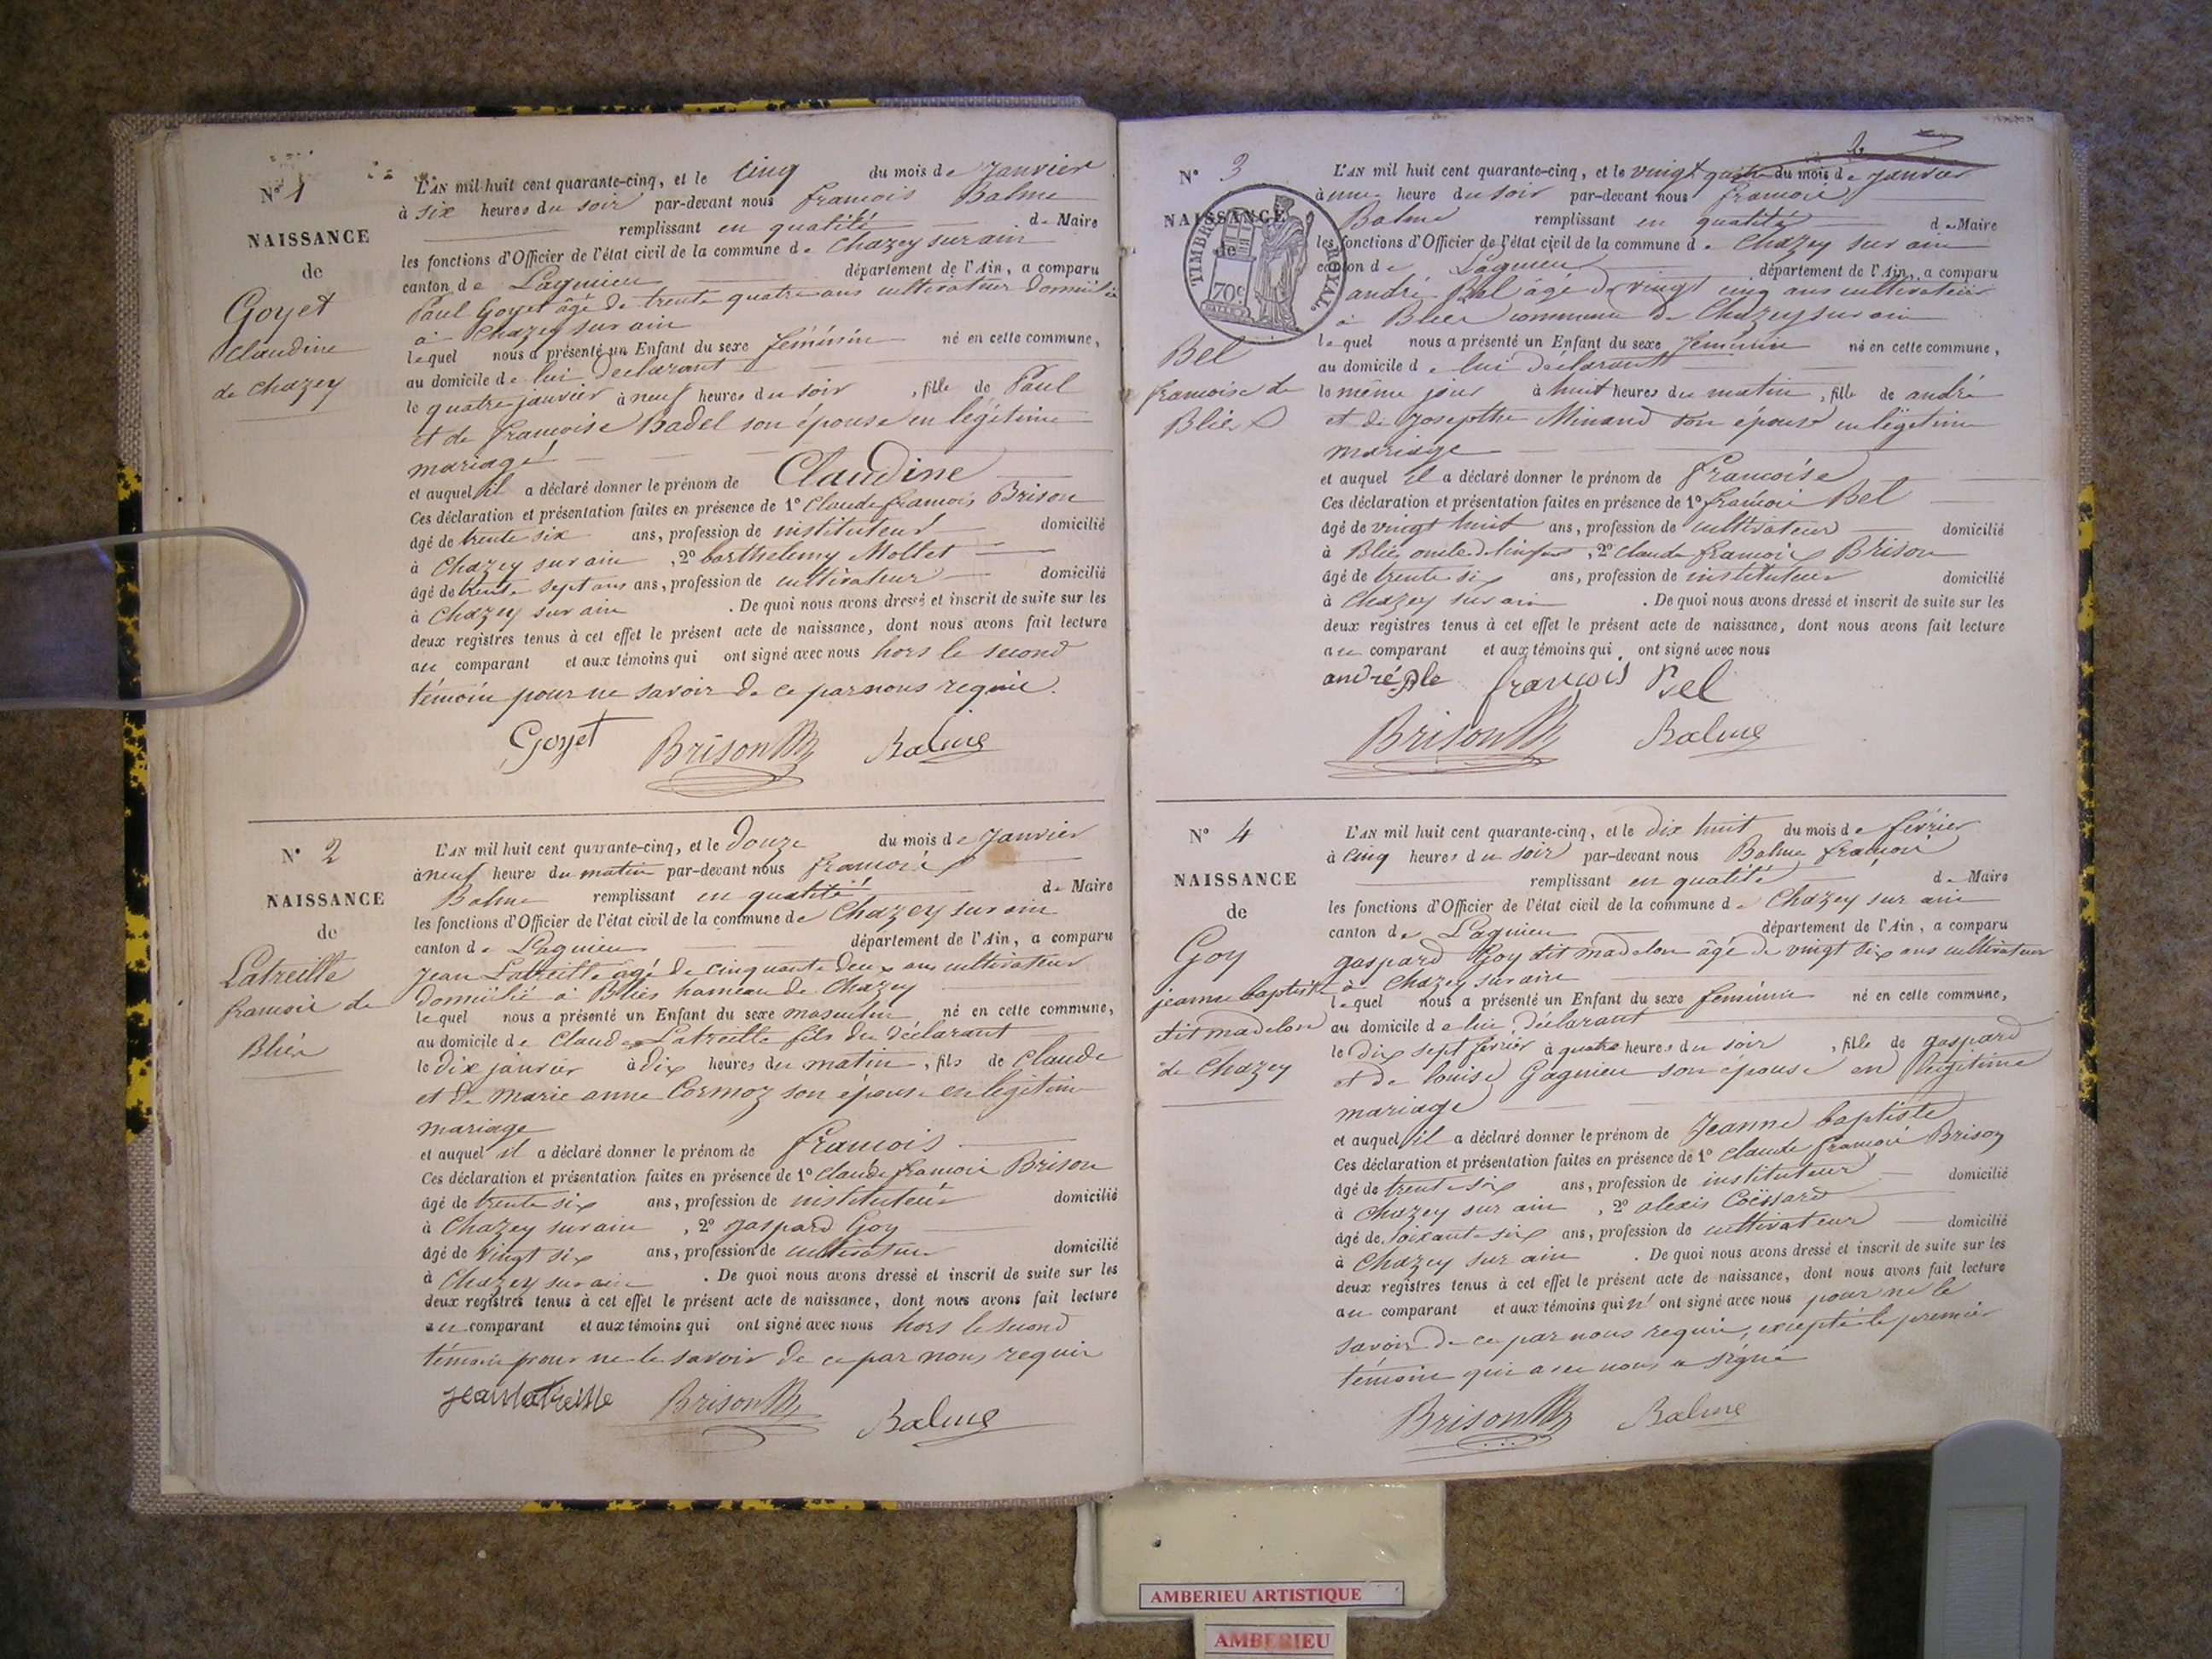 N° 1
NAISSANCE
de
Goyet
Claudine
de Chazey
L'AN mil huit cent quarante-cinq, et le cinq du mois de Janvier
à six heures du soir par-devant nous francois Balme
remplissant en qualité de Maire
les fonctions d'Officier de l'état civil de la commune de Chazey sur ain
canton de Lagnieu département de l'Ain, a comparu
Paul Goyet âgé de trente quatre ans cultivateur domicilié
à Chazey sur ain
lequel nous a présenté un Enfant du sexe féminin né en cette commune,
au domicile de lui déclarant
le quatre janvier à neuf heures du soir, fille de Paul
et de francoise Badel son épouse en légitime
mariage
et auquel il a déclaré donner le prénom de Claudine
Ces déclaration et présentation faites en présence de 1° Claude francois Brison
âgé de trente six ans, profession de instituteur domicilié
à Chazey sur ain, 2° barthelemy Mollet
âgé de trente sept ans ans, profession de cultivateur domicilié
à Chazey sur ain. De quoi nous avons dressé et inscrit de suite sur les
deux registres tenus à cet effet le présent acte de naissance, dont nous avons fait lecture
au comparant et aux témoins qui ont signé avec nous hors le second
témoin pour ne savoir de ce par nous requis.
Goyet Brison Balme
N° 2
NAISSANCE
de
Latreille
francois de
Bliès
L'AN mil huit cent quarante-cinq, et le douze du mois de Janvier
à neuf heures du matin par-devant nous francois
Balme remplissant en qualité de Maire
les fonctions d'Officier de l'état civil de la commune de Chazey sur ain
canton de Lagnieu département de l'Ain, a comparu
Jean Latreille âgé de cinquante deux ans cultivateur
domicilié à Bliès hameau de Chazey
lequel nous a présenté un Enfant du sexe masculin né en cette commune,
au domicile de Claude Latreille fils du déclarant
le dix janvier à dix heures du matin, fils de Claude
et de marie anne Cormoz son épouse en légitime
mariage
et auquel il a déclaré donner le prénom de francois
Ces déclaration et présentation faites en présence de 1° Claude francois Brison
âgé de trente six ans, profession de instituteur domicilié
à Chazey sur ain, 2° gaspard Goy
âgé de vingt six ans, profession de cultivateur domicilié
à Chazey sur ain. De quoi nous avons dressé et inscrit de suite sur les
deux registres tenus à cet effet le présent acte de naissance, dont nous avons fait lecture
au comparant et aux témoins qui ont signé avec nous hors le second
témoin pour ne le savoir de ce par nous requis
jean latreille Brison Balme
N° 3
NAISSANCE
de
TIMBRE ROYAL
70c
Bel
francoise de
Bliès
L'AN mil huit cent quarante-cinq, et le vingt quatre du mois de janvier
à une heure du soir par-devant nous francois
Balme remplissant en qualité de Maire
les fonctions d'Officier de l'état civil de la commune de Chazey sur ain
canton de Lagnieu département de l'Ain, a comparu
andré Bel âgé de vingt cinq ans cultivateur
à Bliès commune de Chazey sur ain
lequel nous a présenté un Enfant du sexe féminin né en cette commune,
au domicile de lui déclarant
le même jour à huit heures du matin, fille de andré
et de Josepthe Minand son épouse en légitime
mariage
et auquel il a déclaré donner le prénom de francoise
Ces déclaration et présentation faites en présence de 1° francois Bel
âgé de vingt huit ans, profession de cultivateur domicilié
à Bliès oncle de l'enfant, 2° claude francois Brison
âgé de trente six ans, profession de instituteur domicilié
à Chazey sur ain. De quoi nous avons dressé et inscrit de suite sur les
deux registres tenus à cet effet le présent acte de naissance, dont nous avons fait lecture
au comparant et aux témoins qui ont signé avec nous
andré Ble francois Bel
Brison Balme
N° 4
NAISSANCE
de
Goy
jeanne baptiste
dit madelon
de Chazey
L'AN mil huit cent quarante-cinq, et le dix huit du mois de février
à cinq heures du soir par-devant nous Balme francois
remplissant en qualité de Maire
les fonctions d'Officier de l'état civil de la commune de Chazey sur ain
canton de Lagnieu département de l'Ain, a comparu
gaspard Goy dit madelon âgé de vingt six ans cultivateur
à Chazey sur ain
lequel nous a présenté un Enfant du sexe féminin né en cette commune,
au domicile de lui déclarant
le dix sept février à quatre heures du soir, fille de gaspard
et de louise Gagnieu son épouse en légitime
mariage
et auquel il a déclaré donner le prénom de Jeanne baptiste
Ces déclaration et présentation faites en présence de 1° claude francois Brison
âgé de trente six ans, profession de instituteur domicilié
à Chazey sur ain, 2° alexis Coëssard
âgé de soixante six ans, profession de cultivateur domicilié
à Chazey sur ain. De quoi nous avons dressé et inscrit de suite sur les
deux registres tenus à cet effet le présent acte de naissance, dont nous avons fait lecture
au comparant et aux témoins qui n' ont signé avec nous pour ne le
savoir de ce par nous requis, excepté le premier
témoin qui avec nous a signé
Brison Balme
AMBERIEU ARTISTIQUE
AMBERIEU